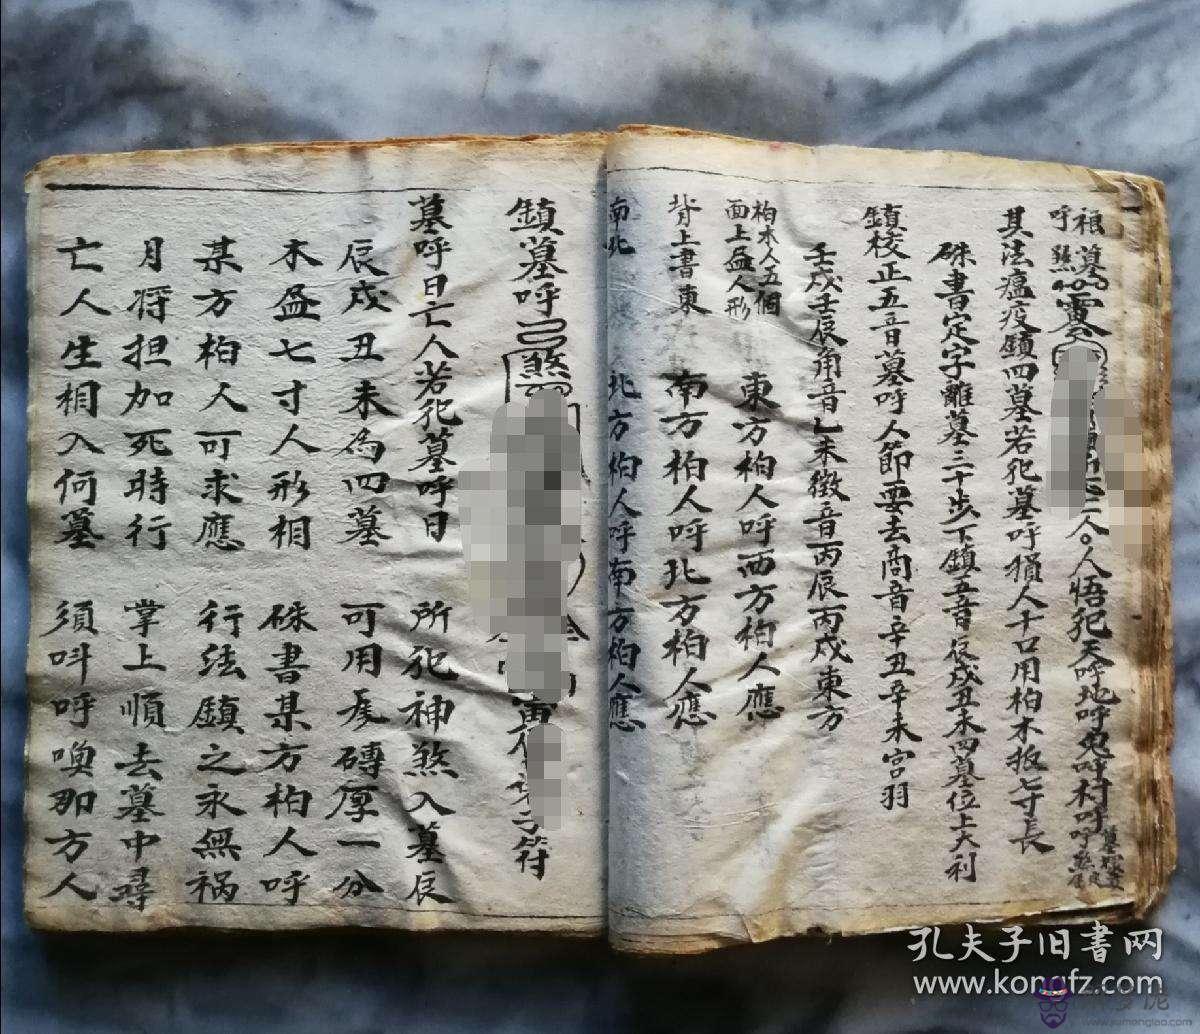 祖墓
呼煞 靈 人悟犯天呼地呼鬼呼村呼
其法瘟疫鎮四墓若犯墓呼損人十口用柏木板七寸長
硃書定字離墓三十步下鎮五音辰戌丑未四墓位上大利
鎮校正五音墓呼人節要去商音辛丑辛未宮羽
壬戌壬辰角音乙未徵音丙辰丙戌東方
柏木人五個
面上畫人形 東方柏人呼西方柏人應
背上書東 南方柏人呼北方柏人應
南北 北方柏人呼南方柏人應
鎮墓呼 煞 符
墓呼日亡人若犯墓呼日 所犯神煞入墓辰
辰戌丑未為四墓 可用磚厚一分
木畫七寸人形相 硃書某方柏人呼
某方柏人可求應 行法鎮之永無禍
月将担加死時行 掌上順去墓中尋
亡人生相入何墓 須呌呼喚那方人
孔夫子旧書网
www.kongfz.com